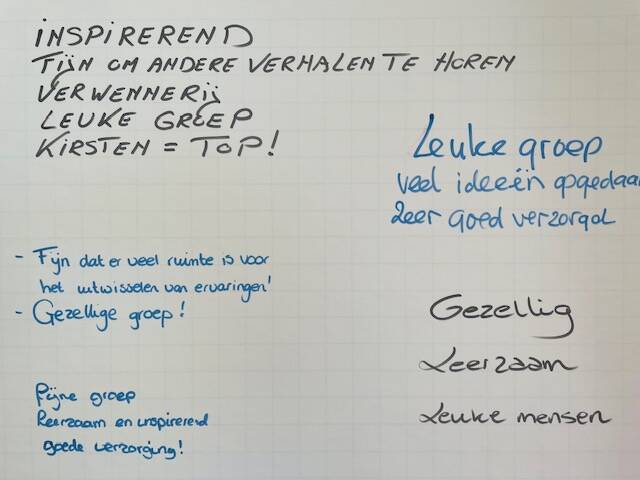 INSPIREREND
FIJN OM ANDERE VERHALEN TE HOREN
VERWENNERIJ
LEUKE GROEP
KIRSTEN = TOP!
Leuke groep
veel ideeën opgedaan
Zeer goed verzorgd
- Fijn dat er veel ruimte is voor
het uitwisselen van ervaringen!
- Gezellige groep!
Gezellig
Leerzaam
Leuke mensen
Fijne groep
Leerzaam en inspirerend
goede verzorging!